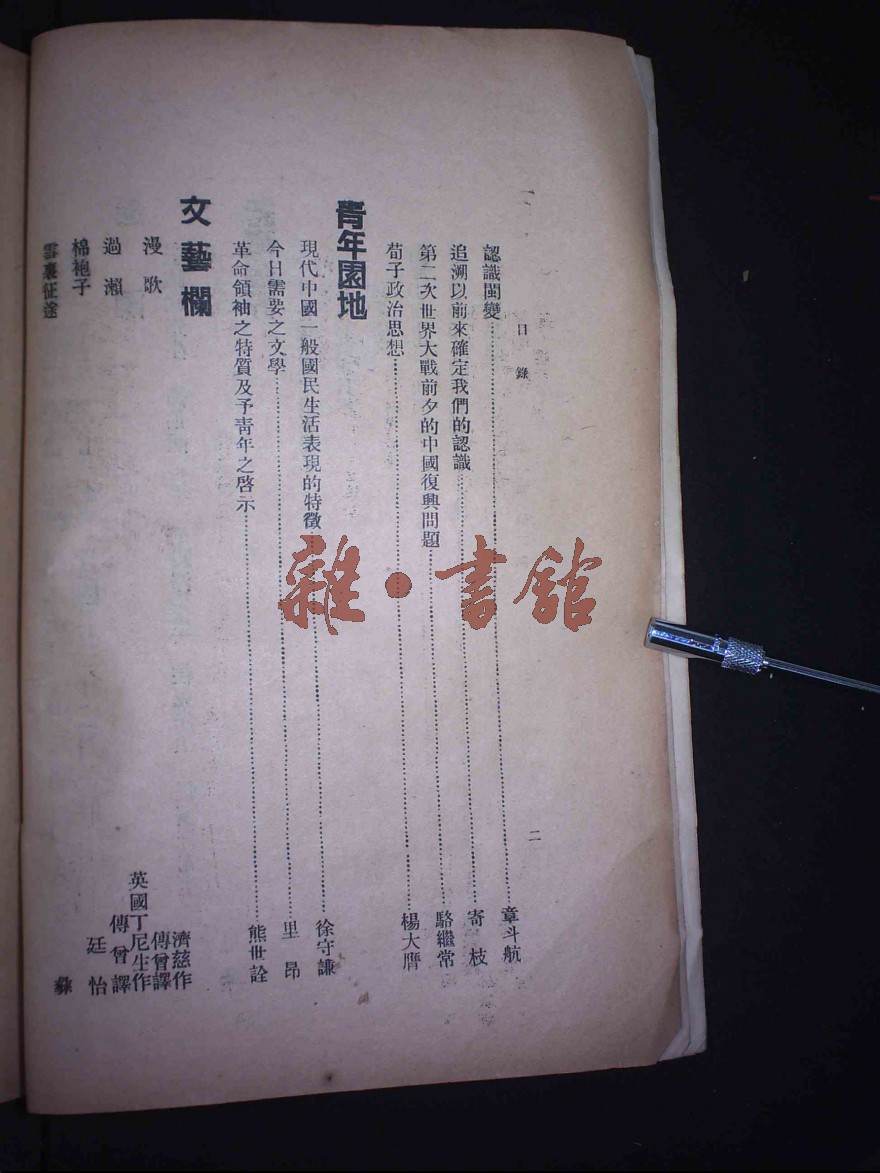 目錄
二
認識閩變 章斗航
追溯以前來確定我們的認識 寄枝
第二次世界大戰前夕的中國復興問題 駱繼常
荀子政治思想 楊大膺
青年園地
現代中國一般國民生活表現的特徵 徐守謙
今日需要之文學 里昂
革命領袖之特質及予青年之啓示 熊世詮
文藝欄
漫歌 濟慈作 傅曾譯
過瀨 英國丁尼生作 傅曾譯
棉袍子 廷怡
雪裏征途
雜·書館